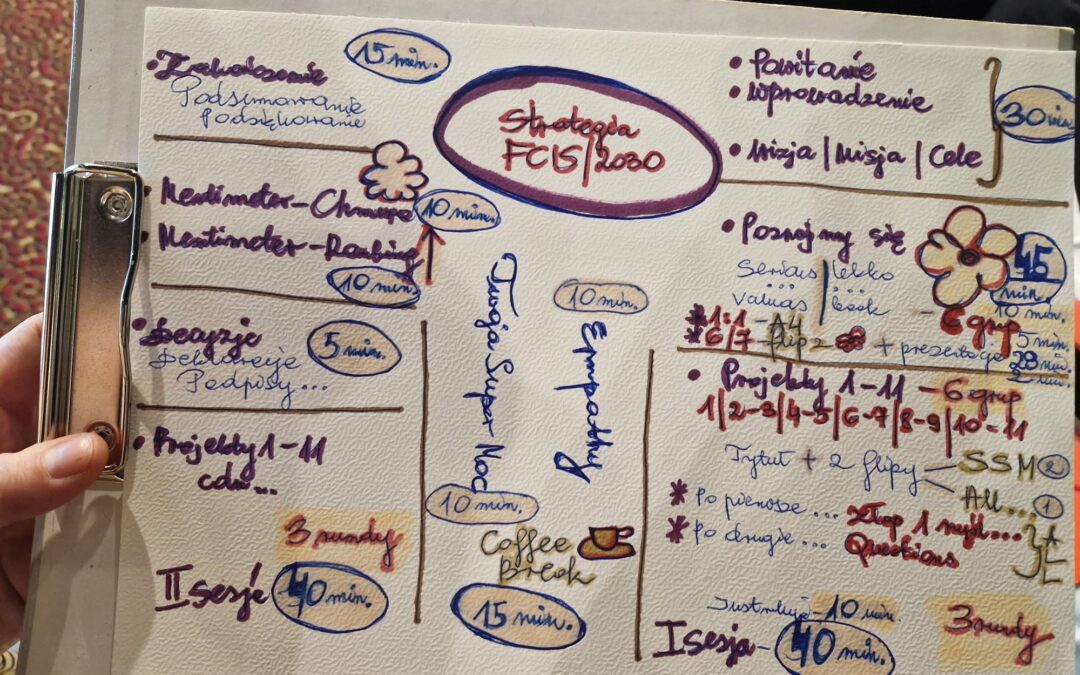 Strategia
FCIS/2030
• Powitanie
• Wprowadzenie
30 min.
• Wizja | Misja | Cele
• Poznajmy się
45 min.
Serious | lekko
... | ...
values | look
10 min.
- 6 grup
* 1:1 - A4
5 min.
* 6/7 - flip z + prezentacje
28 min.
2 min.
• Projekty 1-11 - 6 grup
1|2-3|4-5|6-7|8-9|10-11
Tytuł + 2 flipy
SSM 2
All... 1
* Po pierwsze ... złap 1 myśl...
* Po drugie ... Questions
- 10 min.
3 rundy
I sesja - 40 min.
10 min.
Empathy
Twoja Super Moc
10 min.
Coffee
Break
15 min.
• Projekty 1-11
cdn...
3 rundy
II sesje 40 min.
• Decyzje
Deklaracje
Podpisy...
5 min.
• Mentimeter - Chmura
10 min.
• Mentimeter - Ranking
10 min.
• Zakończenie
15 min.
Podsumowanie
Podziękowanie